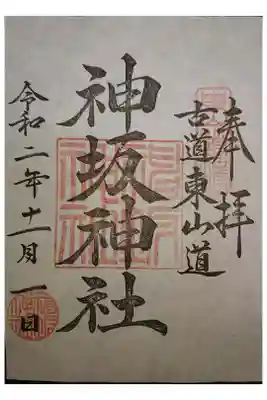 奉拝
古道東山道
神坂神社
令和二年十一月一日